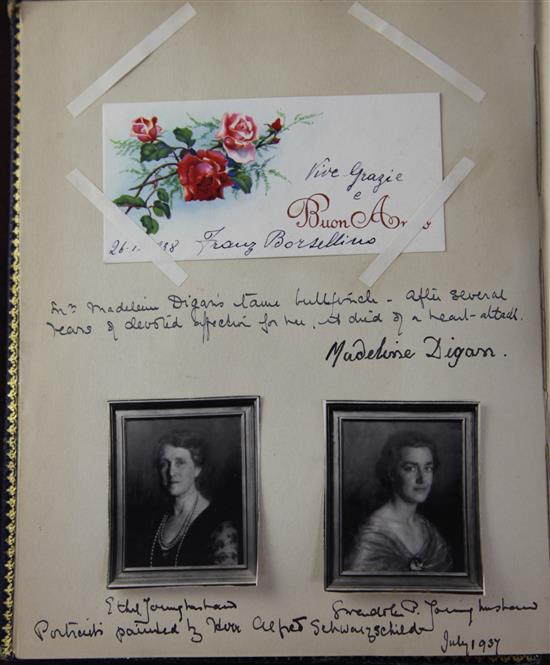 Vive Grazie
e
Buon Anno
26-1-38 Franz Borsellino
Mrs Madeleine Digan's tame bullfinch - After several
years of devoted affection for her, it died of a heart-attack.
Madeline Digan.
Ethel Younghusband
Gwendolin P. Younghusband
Portraits painted by Herr Alfred Schwarzschild
July 1937